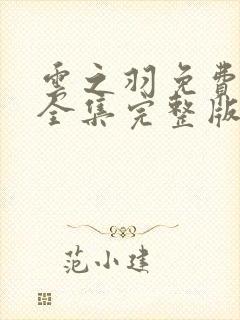 雲之羽免費
全集完整版
范小建